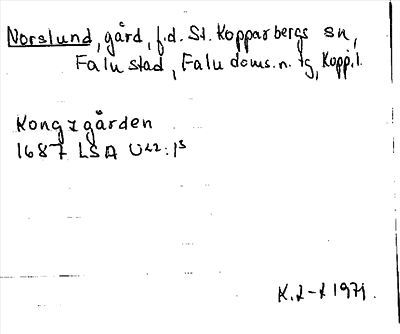 Norslund, gård, f.d. St. Kopparbergs sn,
Falu stad, Falu doms.n. tg, Kopp.l.
Kongzgården
1687 LSA U22:1³
K.L-L 1971.